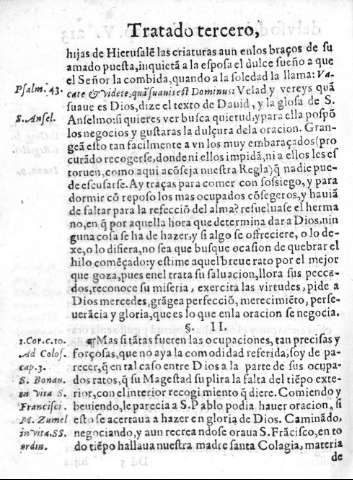 Tratado tercero,
hijas de Hierusalẽ las criaturas aun enlos braços de su
amado puesta, inquietã a la esposa el dulce sueño a que
el Señor la combida, quando a la soledad la llama: Va-
Psalm. 43.
cate & videte, quã suauis est Dominus: Velad y vereys quã
suaue es Dios, dize el texto de Dauid, y la glosa de S.
S. Ansel.
Anselmo: si quieres ver busca quietud, y para ella pospõ
los negocios y gustaras la dulçura dela oracion. Gran-
geã esto tan facilmente a vn los muy embaraçados (pro
curãdo recogerse, donde ni ellos impidã, ni a ellos les es
toruen, como aqui acõseja nuestra Regla) q̃ nadie pue-
de escusarse. Ay traças para comer con sossiego, y para
dormir cõ reposo los mas ocupados cõsegeros, y hauiã
de faltar para la refecciõ del alma? resueluase el herma
no, en q̃ por aquella hora que determina dar a Dios, nin
guna cosa se ha de hazer, y si algo se ofreciere, o lo de-
xe, o lo difiera, no sea que busque ocasion de quebrar el
hilo comẽçado: y estime aquel breue rato por el mejor
que goza, pues enel trata su saluacion, llora sus pecca-
dos, reconoce su miseria, exercita las virtudes, pide a
Dios mercedes, grãgea perfecciõ, merecimiẽto, perse-
uerãcia y gloria, que es lo que enla oracion se negocia.
§. II.
1. Cor. c. 10.
¶Mas si tãtas fueren las ocupaciones, tan precisas y
Ad Colos.
forçosas, que no aya la comodidad referida, soy de pa-
cap. 3.
recer, q̃ en tal caso entre Dios a la parte de sus ocupa-
S. Bonau.
dos ratos, q̃ su Magestad suplira la falta del tiẽpo exte-
in vita S.
rior, con el interior recogimiento q̃ diere. Comiendo y
Francisci.
beuiendo, le parecia a S. Pablo podia hauer oracion, si
M. Zumel
esto se acertaua a hazer en gloria de Dios. Caminãdo,
in vita. SS.
negociando, y aun recreandose oraua S. Frãcisco, en to
ordin.
do tiẽpo hallaua nuestra madre santa Colagia, materia
de